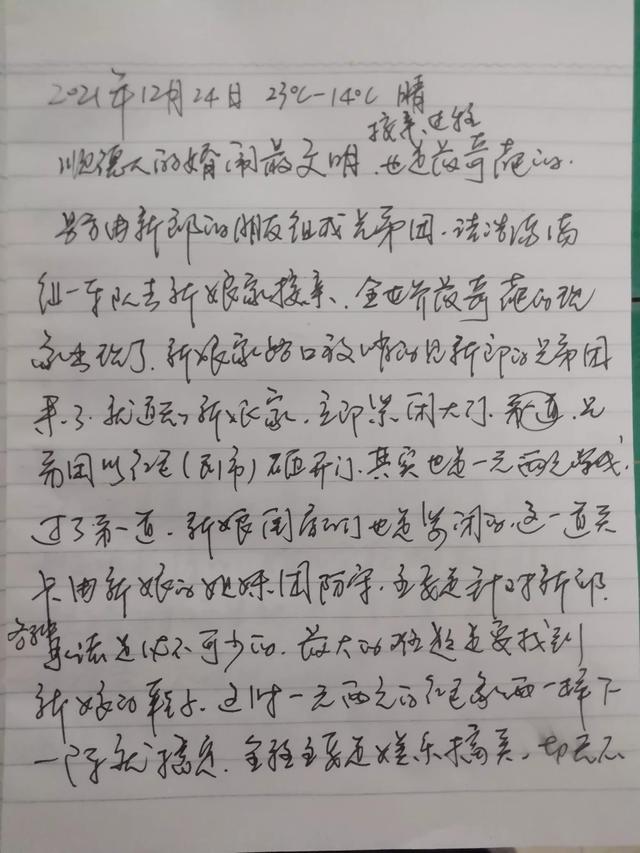 2021年12月24日 23℃-14℃ 晴
接亲过程
顺德人的婚闹最文明、也是最奇葩的.
男方由新郎的朋友组成兄弟团.请浩荡荡
组一车队去新娘家接亲、全世界最奇葩的现
象出现了.新娘家路口放哨的见新郎的兄弟团
来了.就通知新娘家.立即紧闭大门.第一道.兄
弟团以红包(利市)砸开门.其实也是一元两元零钱.
过了第一道.新娘闺房的门也是紧闭的.这一道关
卡由新娘的姐妹团防守.主要是针对新郎.
各种 承诺是必不可少的.最大的难题是要找到
新娘的鞋子.这时一元两元的红包象雨一样下
一阵就搞定.全程主要是娱乐搞笑.切忌不